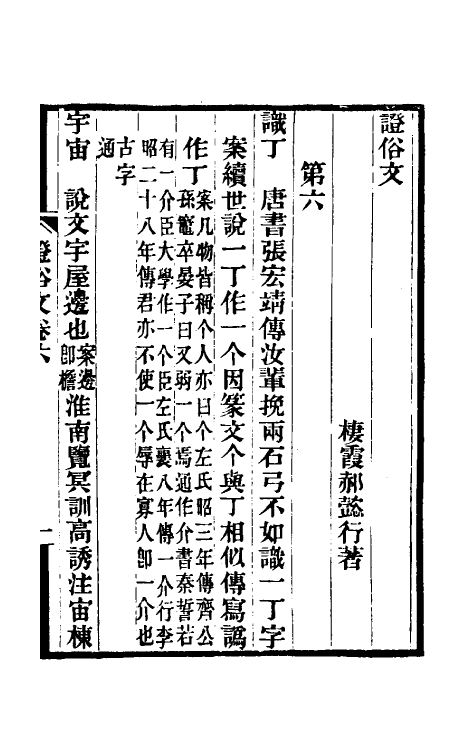 證俗文
棲霞郝懿行著
第六
識丁　唐書張宏靖傳汝輩挽兩石弓不如識一丁字
案續世說一丁作一个因篆文个與丁相似傳寫譌
作丁
案凡物皆稱个人亦曰个左氏昭三年傳齊公
孫竈卒晏子曰又弱一个焉通作介書秦誓若
有一介臣大學作一个臣左氏襄八年傳一介行李
昭二十八年傳君亦不使一个辱在寡人卽一介也
古字
通
宇宙　說文宇屋邊也
案邊
卽檐
淮南覽冥訓高誘注宙棟
證俗文卷六
一